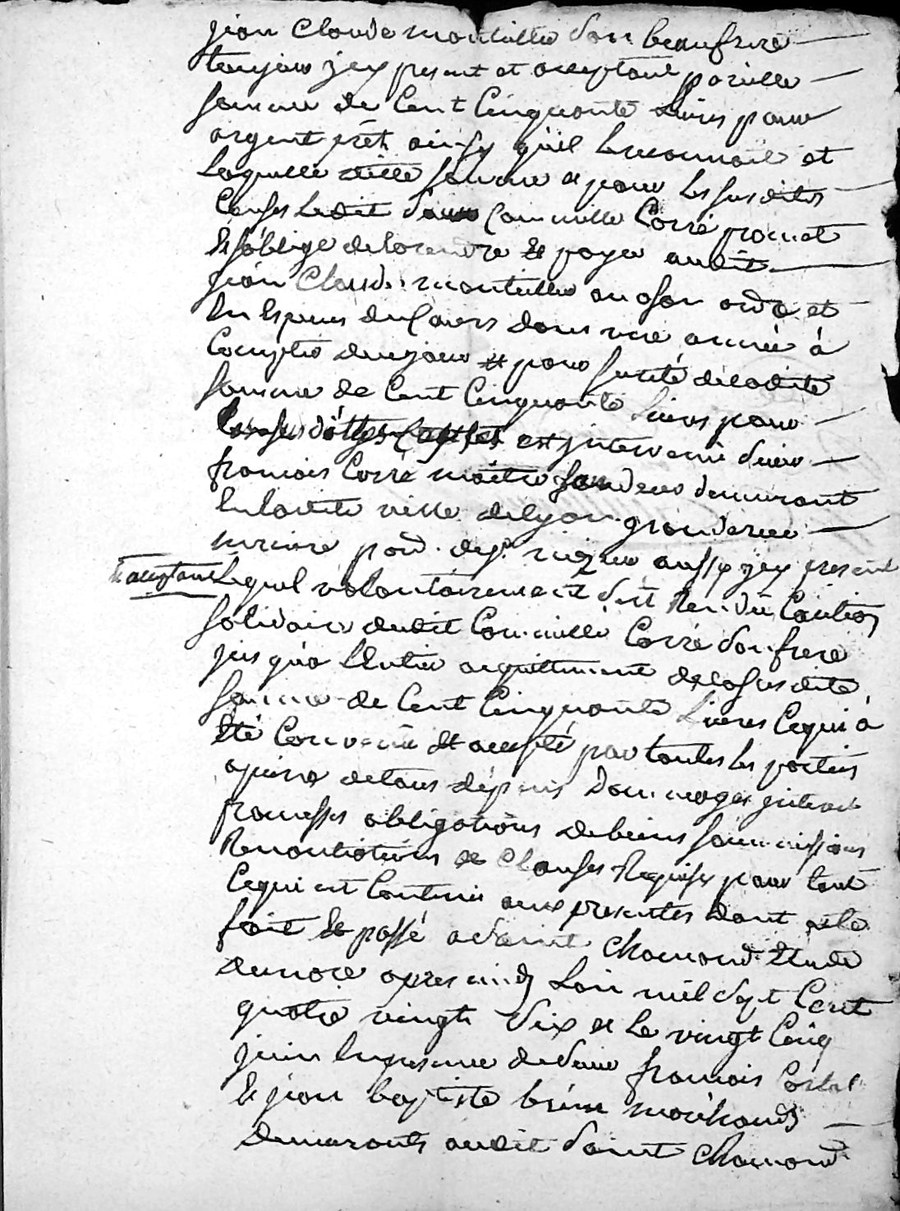 jean Claude montellier son beaufrere
toujour jcy present et acceptant pareille
somme de Cent Cinquante Livres pour
argent prêt ainsy qu'il le reconnait et
Laquelle somme et pour les susdites
Causes Ledit Sieur Camille Corré promet
et s'oblige de la rendre et payer audit
jean Claude montellier ou a son ordre et
En Espèces du Cours dans une année à
Compter du jour et pour sureté de ladite
somme de Cent Cinquante Livres pour
les susdittes Causes est intervenu sieur
francois Corré maitre demeurant
En laditte ville de lyon grande rue
merciere par. de st nizier aussy jcy present
et acceptant Lequel volontairement s'est Rendu Caution
solidaire dudit Camille Corré son frere
jusqu'a L'Entier acquittement de la susdite
somme de Cent Cinquante Livres Ce qui à
Eté Convenu et accepté par toutes les parties
a peine de tous dépens Dommages jnterets
promesses obligations de biens soumissions
Renontiations et Clauses Requises pour tout
Ce qui est Contenu aux presentes Dont acte
fait et passé a saint Chamond Etude
du nore apres midy L'an mil sept Cent
quatre vingt dix et Le vingt Cinq
juin En presence de sieur francois
et jean baptiste marchands
demeurants audit saint Chamond